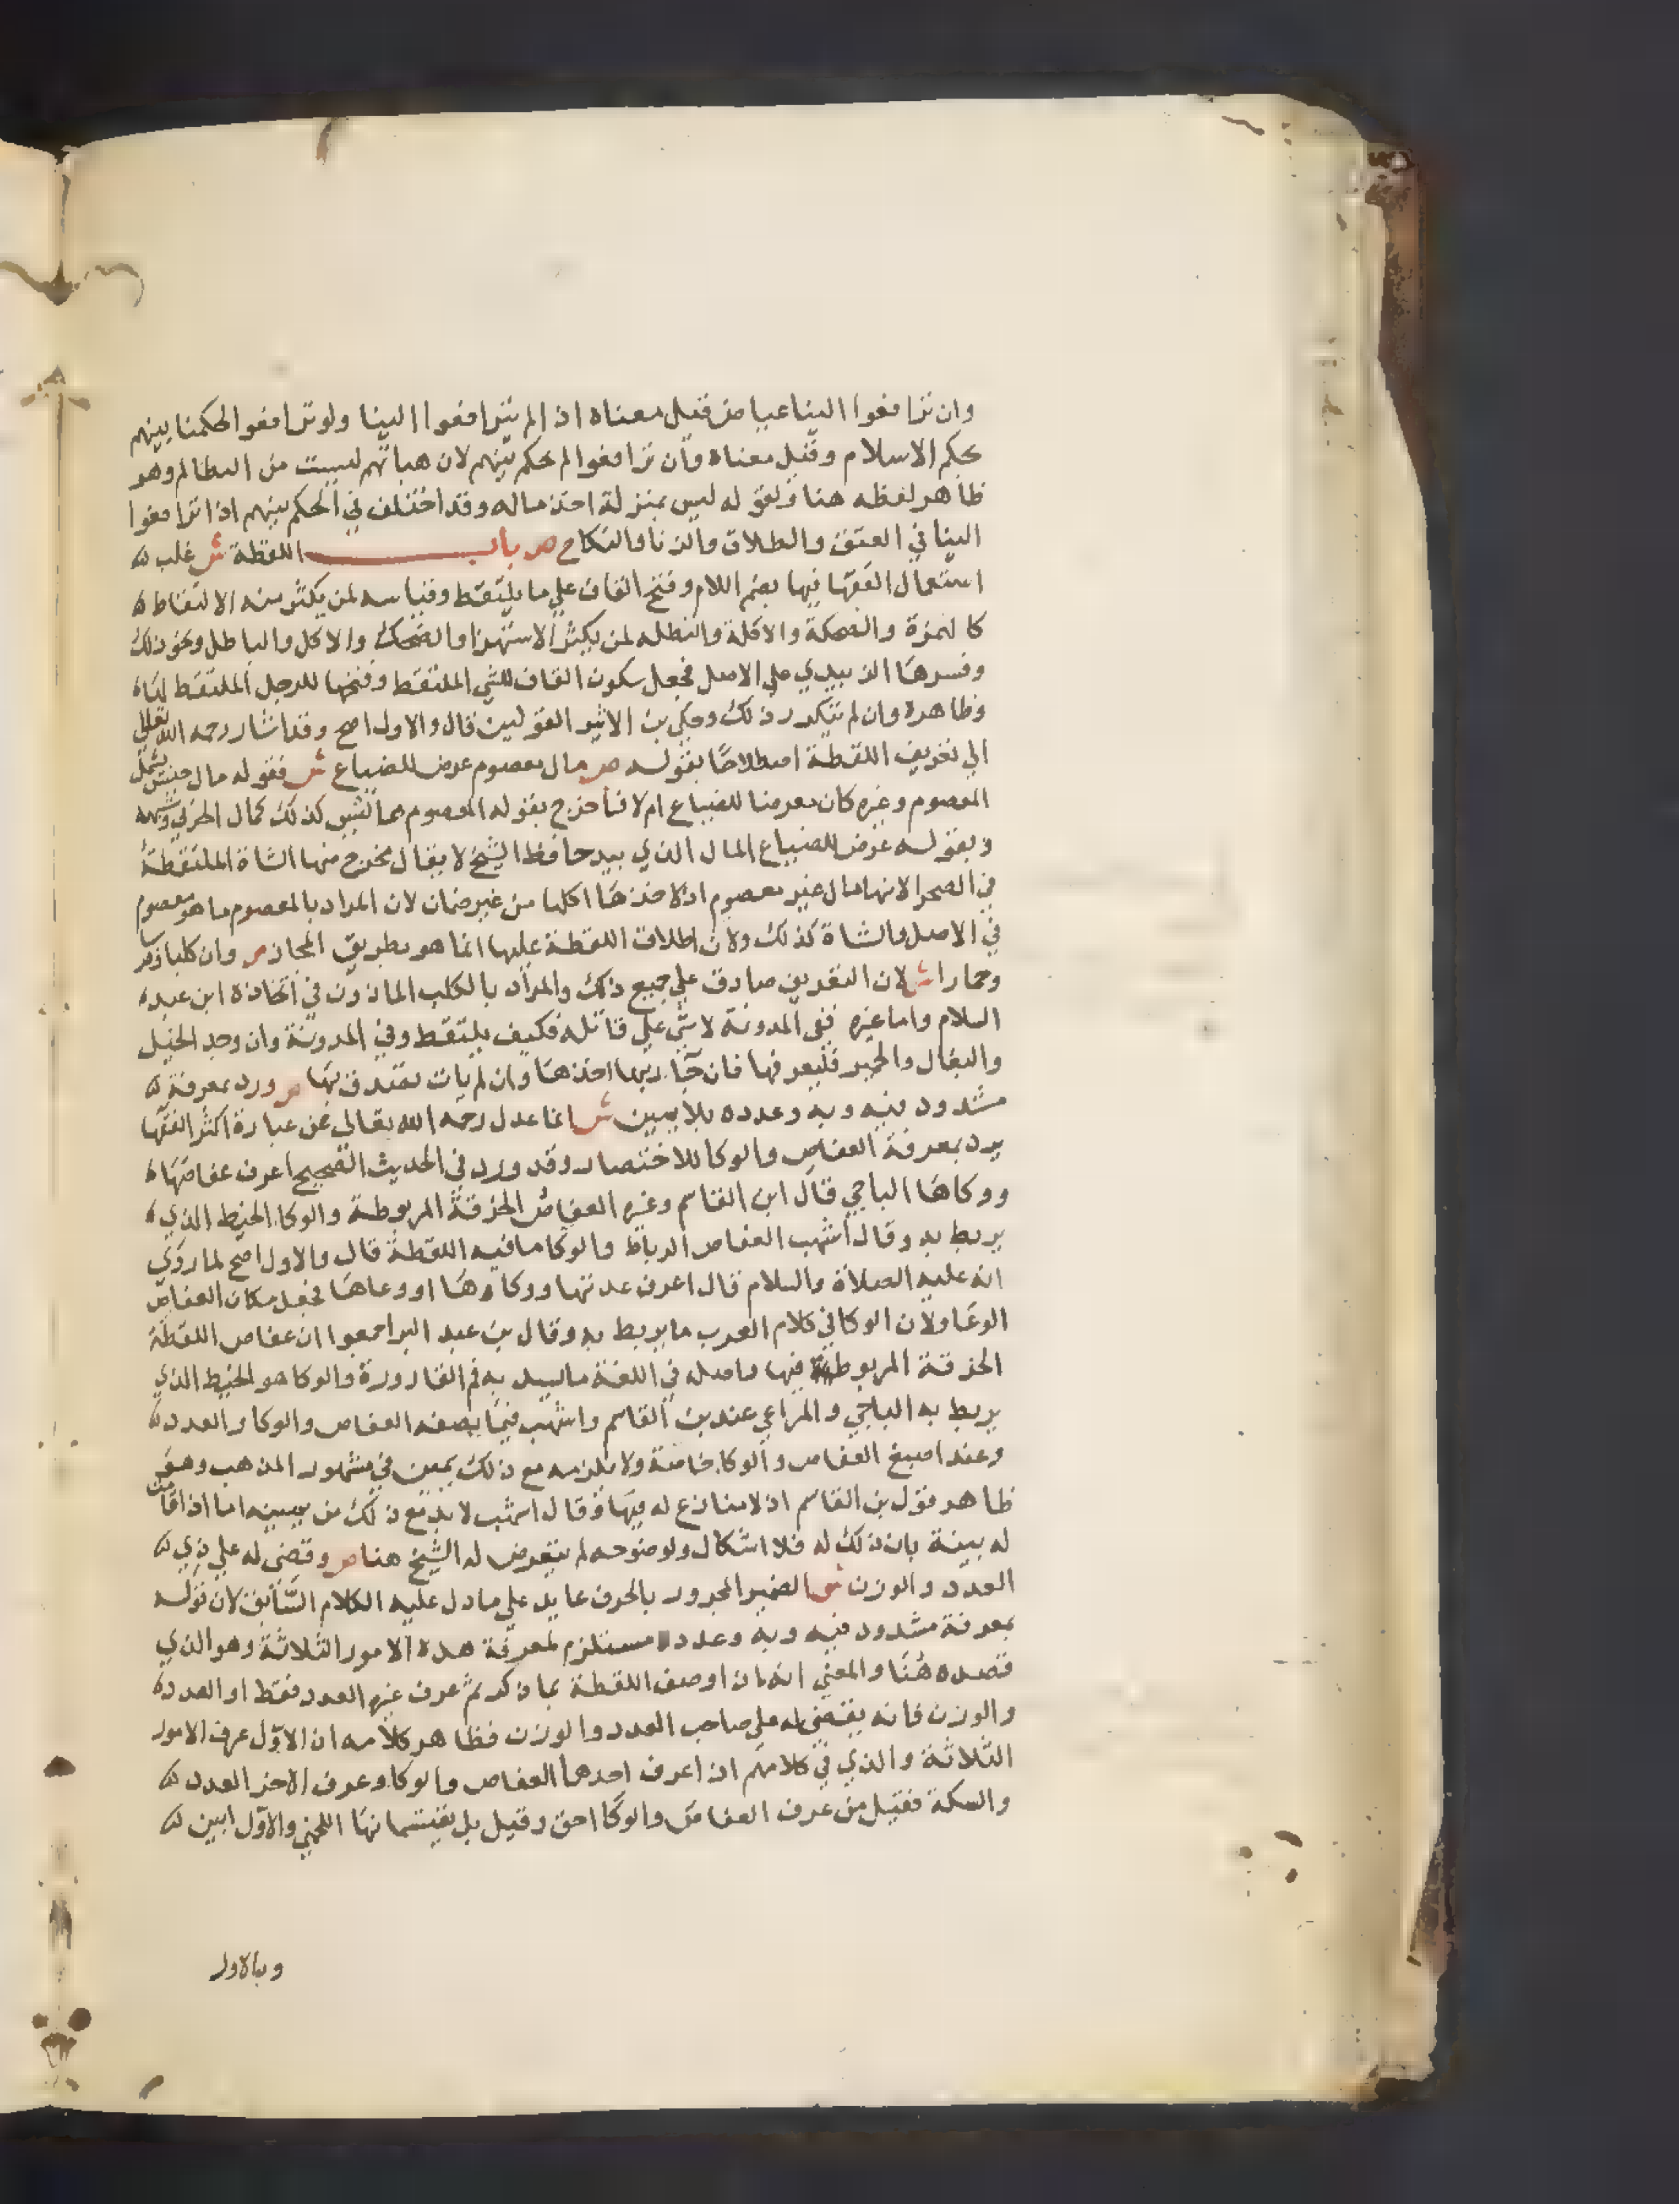 وان ترافعوا الينا عياض قيل معناه اذا لم يترافعوا الينا ولو ترافعوا لحكمنا بينهم
بحكم الاسلام وقيل معناه وان ترافعوا لم نحكم بينهم لان هباتهم ليست من التظالم وهو
ظاهر لفظه هنا ولقوله ليس بمنزلة اخذ ماله وقد اختلف في الحكم بينهم اذا ترافعوا
الينا في العتق والطلاق والزنا والنكاح ص باب اللقطة ش غلب
استعمال الفقها فيها بضم اللام وفتح القاف علي ما يلتقط وقياسه لمن يكثر منه الالتقاط
كالهمزة والضحكة والاكلة والبطله لمن يكثر الاستهزا والضحك والاكل والباطل ونحو ذلك
وفسرها الزبيدي علي الاصل فجعل سكون القاف للشي الملتقط وفتحها للرجل الملتقط لها
وظاهره وان لم يتكرر ذلك وحكي بن الاثير القولين قال والاول اصح وقد اشار رحمه الله تعالي
الي تعريف اللقطة اصطلاحا بقوله ص مال معصوم عرض للضياع ش فقوله مال جنس يشمل
المعصوم وغيره كان معرضا للضياع ام لا فاخرج بقوله المعصوم ما ليس كذلك كمال الحربي وشبهه
وبقوله عرض للضياع المال الذي بيد حافظ الشيخ لا يقال يخرج منها الشاة الملتقطة
في الصحرا لانها مال غير معصوم اذ لاخذها اكلها من غير ضمان لان المراد بالمعصوم ما هو معصوم
في الاصل والشاة كذلك ولان اطلاق اللقطة عليها انما هو بطريق المجاز ص وان كلبا وفرسا
وحمارا ش لان التعريف صادق علي جميع ذلك والمراد بالكلب الماذون في اتخاذه ابن عبد
السلام واما غيره ففي المدونة لا شي علي قاتله فكيف يلتقط وفي المدونة وان وجد الخيل
والبغال والحمير فليعرفها فان جا ربها اخذها وان لم يات تصدق بها ص ورد بمعرفة
مشدود فيه وبه وعدده بلا يمين ش انما عدل رحمه الله تعالي عن عبارة اكثر الفقها
يرد بمعرفة العفاص والوكا للاختصار وقد ورد في الحديث الصحيح اعرف عفاصها
ووكاها الباجي قال ابن القاسم وغيره العفاص الخرقة المربوطة والوكا الخيط الذي
يربط به وقال اشهب العفاص الرباط والوكا ما فيه اللقطة قال والاول اصح لما روي
انه عليه الصلاة والسلام قال اعرف عدتها ووكاوها او وعاها فجعل مكان العفاص
الوعا ولان الوكا في كلام العرب ما يربط به وقال بن عبد البر اجمعوا ان عفاص اللقطة
الخرقة المربوطة فيها واصله في اللغة ما يسد به فم القارورة والوكا هو الخيط الذي
يربط به الباجي والمراعي عند بن القاسم واشهب فيما يصفه العفاص والوكا والعدد
وعند اصبغ العفاص والوكا خاصة ولا يلزمه مع ذلك يمين في مشهور المذهب وهو
ظاهر قول بن القاسم اذ لا منازع له فيها وقال اشهب لا بد مع ذلك من يمينه اما اذا قامت
له بينة بان ذلك له فلا اشكال ولوضوحه لم يتعرض له الشيخ هنا ص وقضى له علي ذي
العدد والوزن ش الضمير المجرور بالحرف عايد علي ما دل عليه الكلام السابق لان قوله
بمعرفة مشدود فيه وبه وعدده مستلزم لمعرفة هذه الامور الثلاثة وهو الذي
قصده هنا والمعني انه اذا وصف اللقطة بما ذكر ثم عرف غيره العدد فقط او العدد
والوزن فانه يقضى له علي صاحب العدد والوزن فظاهر كلامه ان الاول عرف الامور
الثلاثة والذي في كلامهم اذا عرف احدهما العفاص والوكا وعرف الاخر العدد
والسكة فقيل من عرف العفاص والوكا احق وقيل بل يقتسمانها اللخمي والاول ابين
وبالاول